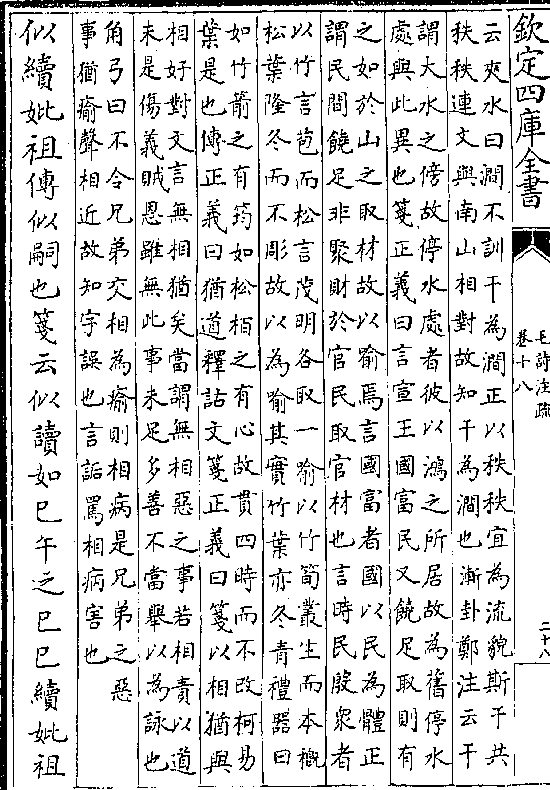 欽定四庫全書
毛詩注疏
卷十八
二十八
云夾水曰澗不訓干為澗正以秩秩宜為流貌斯干共
秩秩連文與南山相對故知干為澗也漸卦鄭注云干
謂大水之傍故停水處者彼以鴻之所居故為舊停水
處與此異也箋正義曰言宣王國富民又饒足取則有
之如於山之取材故以喻焉言國富者國以民為體正
謂民間饒足非聚財於官民取官材也言時民殷衆者
以竹言苞而松言茂明各取一喻以竹筍叢生而本穊
松葉隆冬而不彫故以為喻其實竹葉亦冬青禮器曰
如竹箭之有筠如松栢之有心故貫四時而不改柯易
葉是也傳正義曰猶道釋詁文箋正義曰箋以相猶與
相好對文言無相猶矣當謂無相惡之事若相責以道
未是傷義賊恩雖無此事未足多善不當舉以為詠也
角弓曰不令兄弟交相為瘉則相病是兄弟之惡
事猶瘉聲相近故知字誤也言詬罵相病害也
似續妣祖傳似嗣也箋云似讀如巳午之巳巳續妣祖